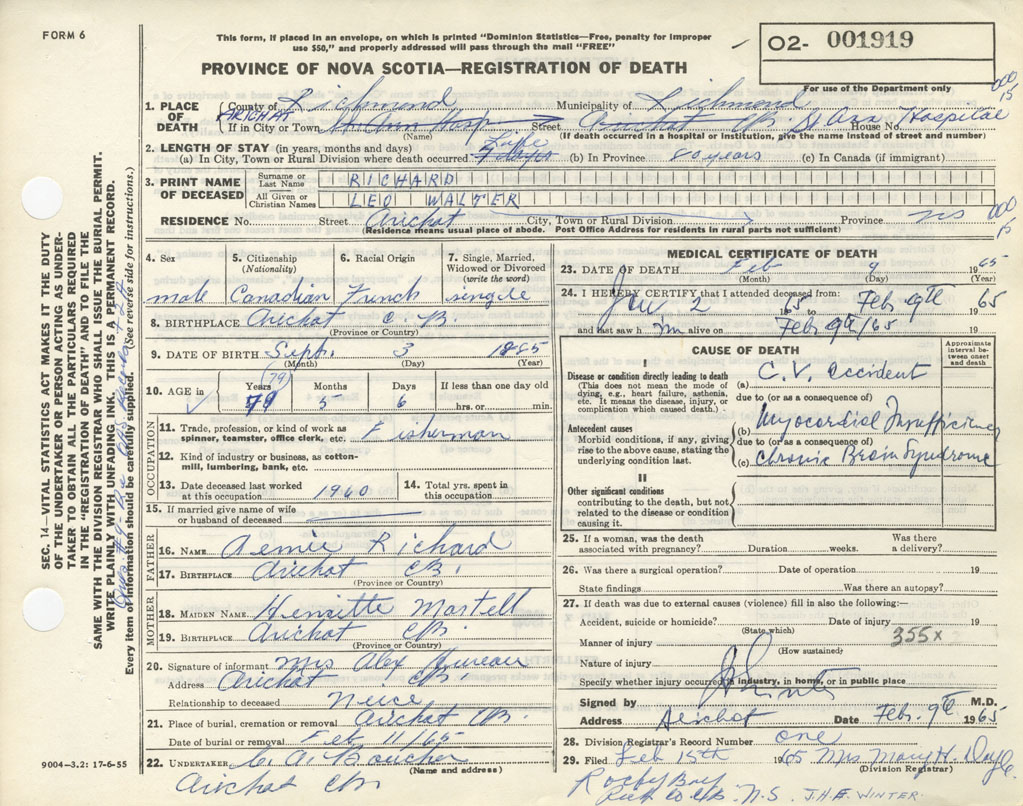 FORM 6
This form, if placed in an envelope, on which is printed "Dominion Statistics—Free, penalty for improper
use $50," and properly addressed will pass through the mail "FREE"
O2- 001919
PROVINCE OF NOVA SCOTIA—REGISTRATION OF DEATH
For use of the Department only
1. PLACE OF DEATH County of Richmond Municipality of Richmond
ARICHAT
If in City or Town St Ann Hosp Street Arichat CB. St Ann Hospital House No.
(Name) (If death occurred in a hospital or institution, give the name instead of street and number)
2. LENGTH OF STAY (in years, months and days) Life
(a) In City, Town or Rural Division where death occurred 7 days (b) In Province 80 years (c) In Canada (if immigrant)
3. PRINT NAME OF DECEASED
Surname or Last Name RICHARD
All Given or Christian Names LEO WALTER
RESIDENCE No. Street Arichat City, Town or Rural Division Province NS
(Residence means usual place of abode. Post Office Address for residents in rural parts not sufficient)
4. Sex male
5. Citizenship (Nationality) Canadian
6. Racial Origin French
7. Single, Married, Widowed or Divorced (write the word) single
8. BIRTHPLACE Arichat C.B.
(Province or Country)
9. DATE OF BIRTH Sept. 3 1885
(Month) (Day) (Year)
10. AGE in Years 79 (79) Months 5 Days 6 If less than one day old hrs. or min.
OCCUPATION
11. Trade, profession, or kind of work as spinner, teamster, office clerk, etc. Fisherman
12. Kind of industry or business, as cotton-mill, lumbering, bank, etc.
13. Date deceased last worked at this occupation 1940
14. Total yrs. spent in this occupation
15. If married give name of wife or husband of deceased
FATHER
16. NAME Richard
17. BIRTHPLACE Arichat CB.
(Province or Country)
MOTHER
18. MAIDEN NAME Henriette Martell
19. BIRTHPLACE Arichat CB.
(Province or Country)
20. Signature of informant Mrs Alex
Address Arichat CB.
Relationship to deceased Neice
21. Place of burial, cremation or removal Arichat CB.
Date of burial or removal Feb 11/65
22. UNDERTAKER C. A. Boucher
(Name and address)
Arichat CB
9004—3,2: 17-6-55
MEDICAL CERTIFICATE OF DEATH
23. DATE OF DEATH Feb 9 1965
(Month) (Day) (Year)
24. I HEREBY CERTIFY that I attended deceased from:
Jan 2 1965 Feb. 9th 1965
and last saw h im alive on Feb 9th/65 19
CAUSE OF DEATH
Approximate interval between onset and death
I
Disease or condition directly leading to death
(This does not mean the mode of dying, e.g., heart failure, asthenia, etc. It means the disease, injury, or complication which caused death.)
(a) C.V. accident
due to (or as a consequence of)
Antecedent causes
Morbid conditions, if any, giving rise to the above cause, stating the underlying condition last.
(b) Myocardial Insufficiency
due to (or as a consequence of)
(c) Chronic Brain Syndrome
II
Other significant conditions
contributing to the death, but not related to the disease or condition causing it.
25. If a woman, was the death associated with pregnancy? Duration weeks. Was there a delivery?
26. Was there a surgical operation? Date of operation 19
State findings Was there an autopsy?
27. If death was due to external causes (violence) fill in also the following:—
Accident, suicide or homicide? Date of injury 19
(State which)
Manner of injury 355x
(How sustained)
Nature of injury
Specify whether injury occurred in industry, in home, or in public place
Signed by M.D.
Address Arichat Date Feb. 9th 1965
28. Division Registrar's Record Number one
29. Filed Feb 15th 1965 Mrs Mary H. Doyle
(Division Registrar)
Rocky Bay
Rich Co CB. N.S. J.H.E. WINTER
SEC. 14—VITAL STATISTICS ACT MAKES IT THE DUTY
OF THE UNDERTAKER OR PERSON ACTING AS UNDER-
TAKER TO OBTAIN ALL THE PARTICULARS REQUIRED
IN THE "REGISTRATION OF DEATH" AND TO FILE THE
SAME WITH THE DIVISION REGISTRAR WHO SHALL ISSUE THE BURIAL PERMIT.
WRITE PLAINLY WITH UNFADING INK. THIS IS A PERMANENT RECORD.
Every item of information should be carefully supplied. (See reverse side for instructions.)